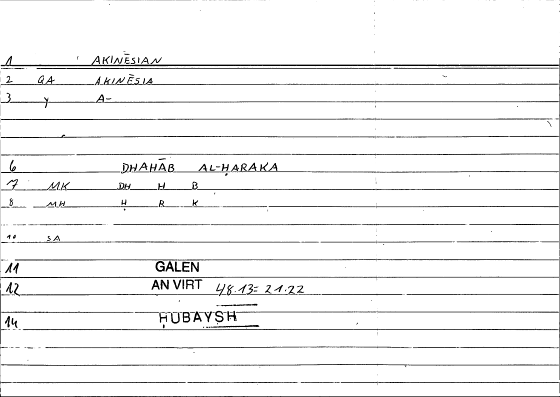 1 AKINĒSIAN
2 QA AKINĒSIA
3 y A-
6 DHAHĀB AL-ḤARAKA
7 MK DH H B
8 MH Ḥ R K
10 SA
11 GALEN
12 AN VIRT 48.13= 21.22
14 ḤUBAYSH